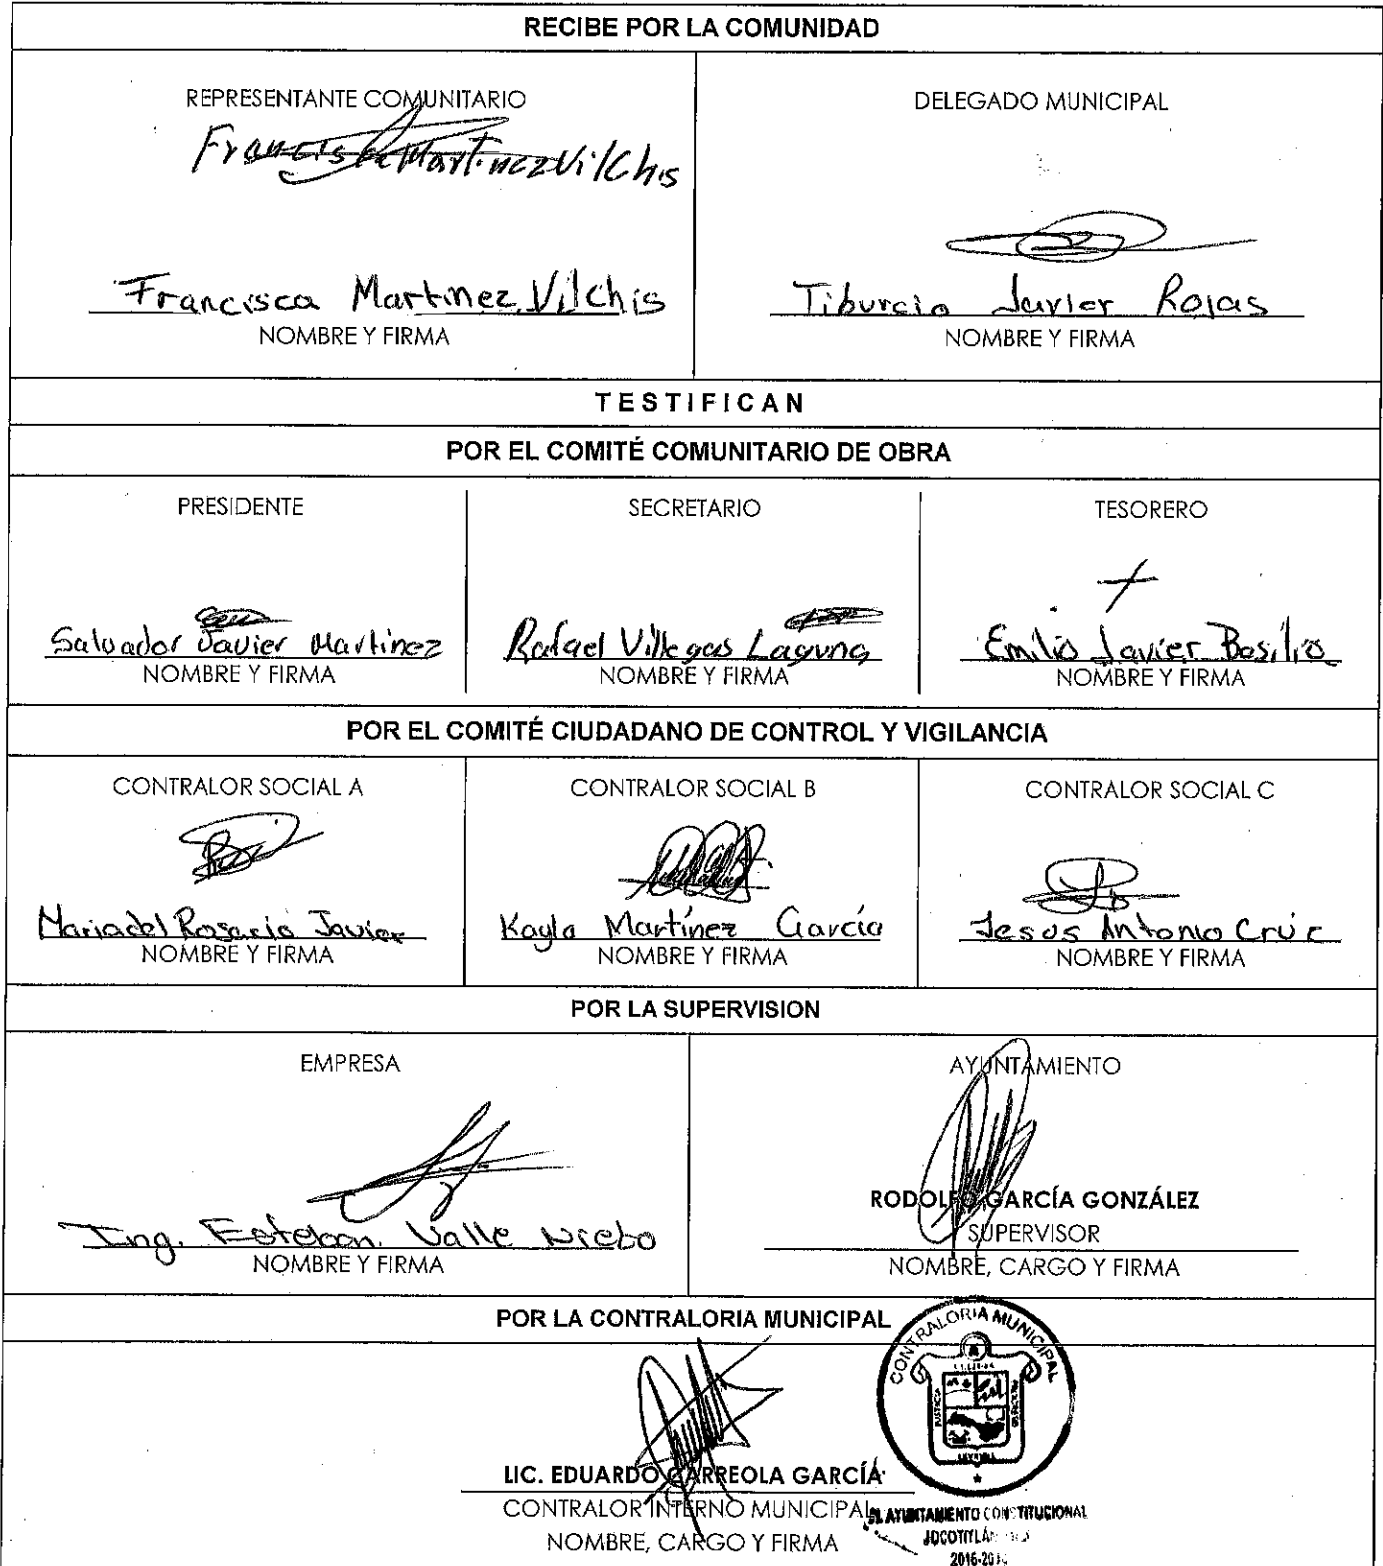 RECIBE POR LA COMUNIDAD
REPRESENTANTE COMUNITARIO
Francisca Martinez Vilchis
Francisca Martinez Vilchis
NOMBRE Y FIRMA
DELEGADO MUNICIPAL
Tiburcio Javier Rojas
NOMBRE Y FIRMA
TESTIFICAN
POR EL COMITÉ COMUNITARIO DE OBRA
PRESIDENTE
Salvador Javier Martinez
NOMBRE Y FIRMA
SECRETARIO
Rafael Villegas Laguna
NOMBRE Y FIRMA
TESORERO
Emilio Javier Basilio
NOMBRE Y FIRMA
POR EL COMITÉ CIUDADANO DE CONTROL Y VIGILANCIA
CONTRALOR SOCIAL A
Maria del Rosario Javier
NOMBRE Y FIRMA
CONTRALOR SOCIAL B
Kayla Martínez García
NOMBRE Y FIRMA
CONTRALOR SOCIAL C
Jesus Antonio Cruz
NOMBRE Y FIRMA
POR LA SUPERVISION
EMPRESA
Ing. Esteban Valle Nieto
NOMBRE Y FIRMA
AYUNTAMIENTO
RODOLFO GARCÍA GONZÁLEZ
SUPERVISOR
NOMBRE, CARGO Y FIRMA
POR LA CONTRALORIA MUNICIPAL
LIC. EDUARDO CARREOLA GARCÍA
CONTRALOR INTERNO MUNICIPAL
NOMBRE, CARGO Y FIRMA
CONTRALORIA MUNICIPAL
AYUNTAMIENTO CONSTITUCIONAL
JOCOTITLÁN